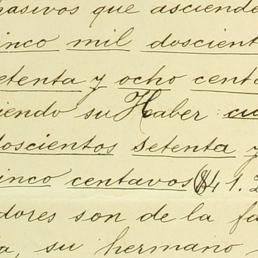 pasivos que asciende
inco mil doscient
etenta y ocho cent
iendo su Haber cu
doscientos setenta y
inco centavos ($41.2
dores son de la fa
a, su hermano